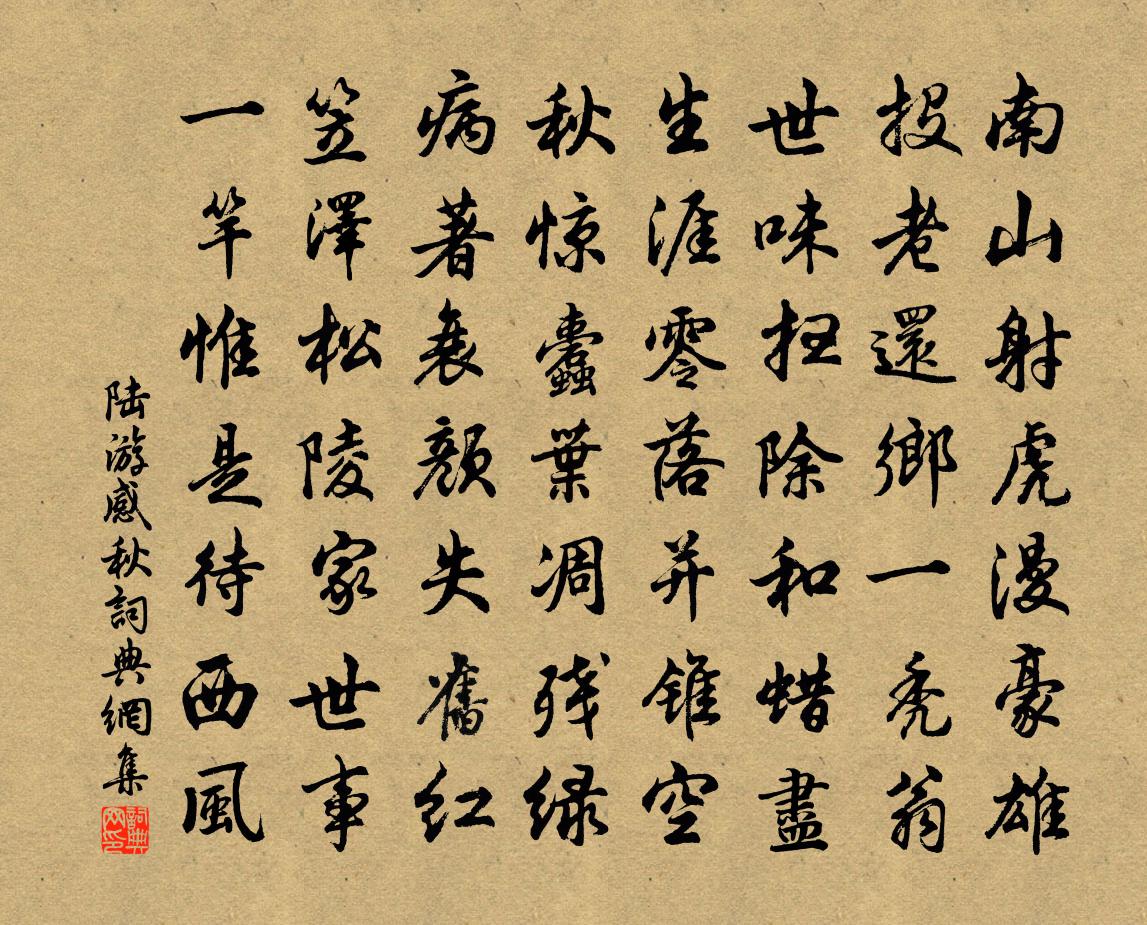 南山射虎漫豪雄
投老還鄉一禿翁
世味掃除和蜡盡
生涯零落并錐空
秋惊蠹葉凋残绿
病著衰顏失舊红
笠澤松陵家世事
一竿惟是待西風
陆游感秋詞典網集
詞典网印